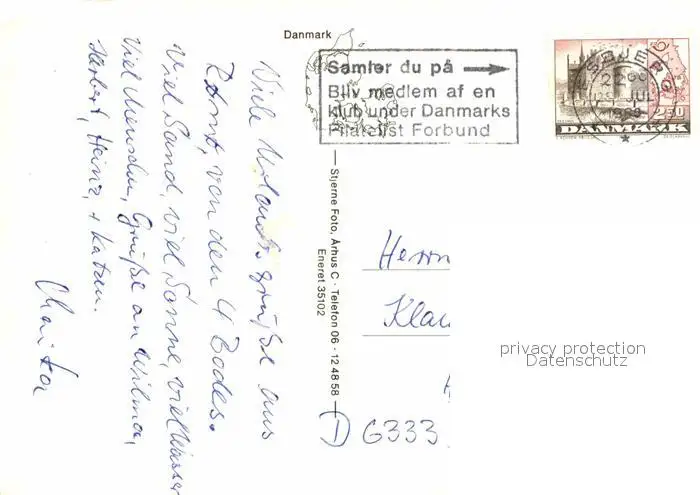 Danmark
Samler du på
Bliv medlem af en
klub under Danmarks
Filatelist Forbund
DANMARK
Viele Urlaubsgrüße aus
von den 4 Bodes.
Viel Sand, viel Sonne, viel Wasser
Viel Menschen, Grüße an Wilma,
Herbert, Heinz, + Katzen.
Stjerne Foto, Århus C · Telefon 06 - 12 48 58
Eneret 35102
Herrn
Klau
D 6333
privacy protection
Datenschutz